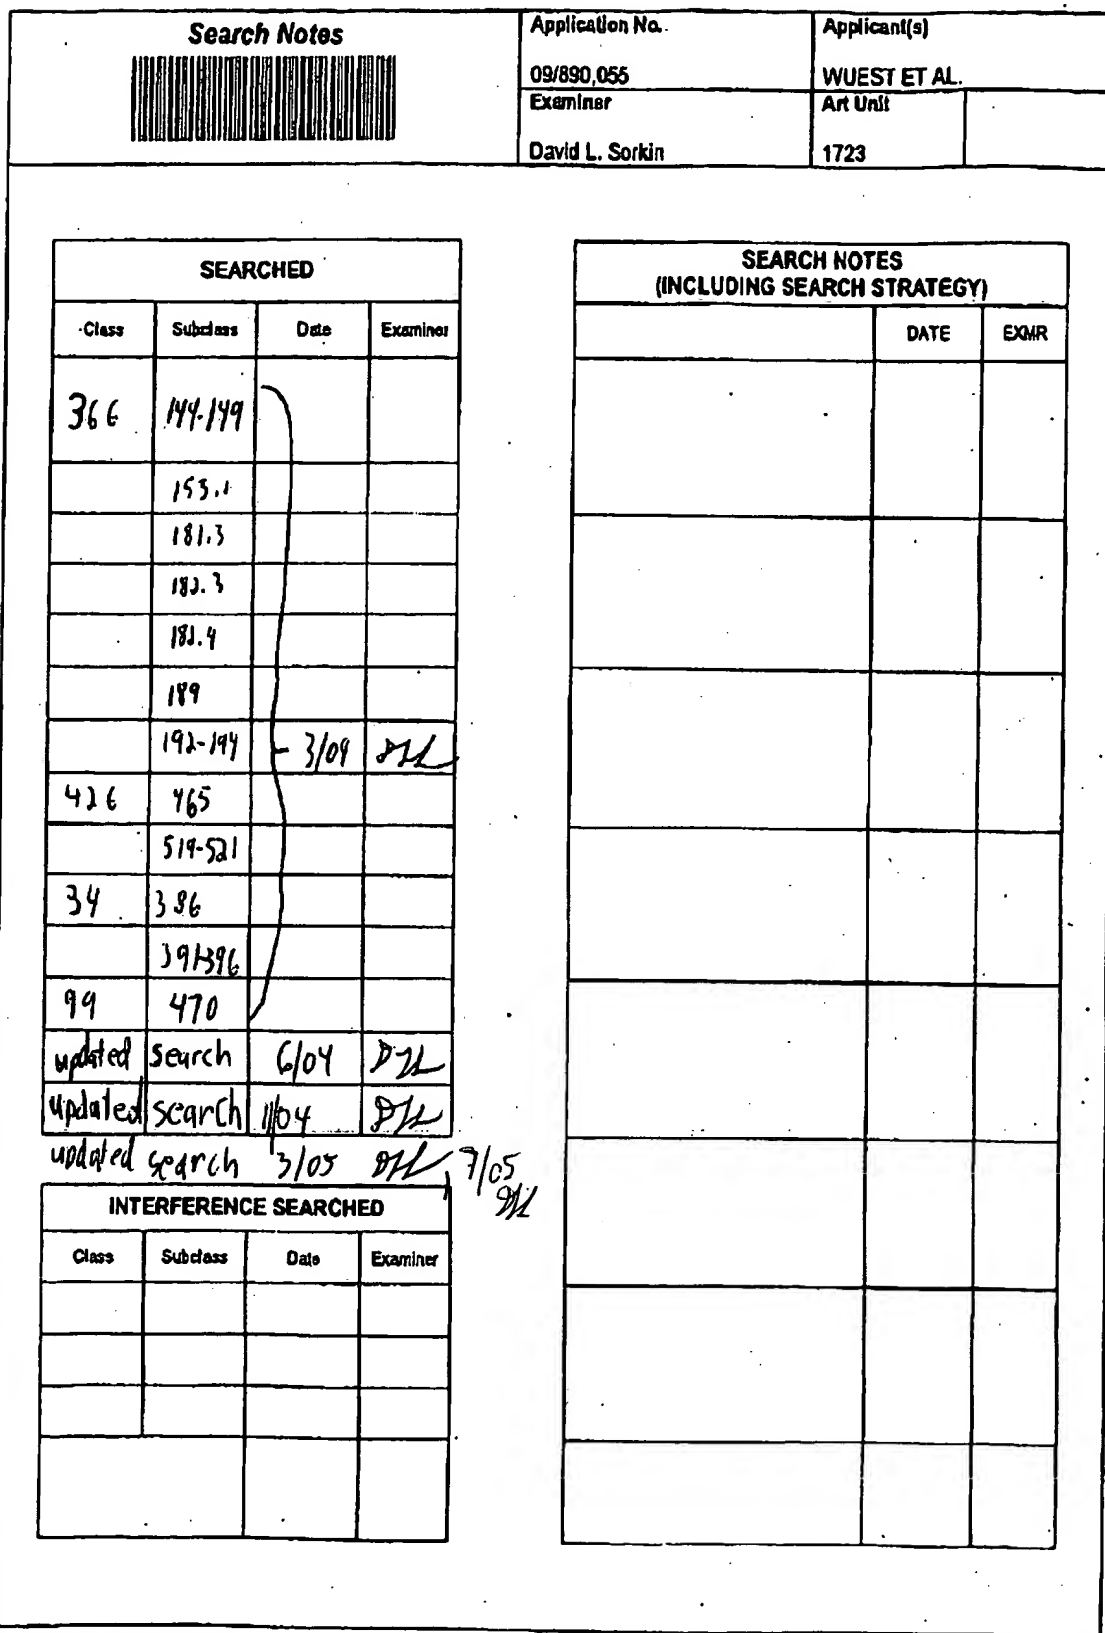 Search Notes
Application No.
Applicant(s)
09/890,055
WUEST ET AL.
Examiner
Art Unit
David L. Sorkin
1723
SEARCHED
Class Subclass Date Examiner
366 144-149
153.1
181.3
182.3
182.4
189
192-194 3/04 DLS
426 465
519-521
34 386
391-396
99 470
updated search 6/04 DLS
updated search 11/04 DLS
updated search 3/05 DLS, 7/05
DLS
INTERFERENCE SEARCHED
Class Subclass Date Examiner
SEARCH NOTES
(INCLUDING SEARCH STRATEGY)
DATE EXMR